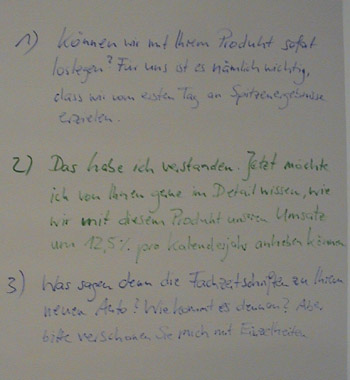 1) Können wir mit Ihrem Produkt sofort
loslegen? Für uns ist es nämlich wichtig,
dass wir vom ersten Tag an Spitzenergebnisse
erzielen.
2) Das habe ich verstanden. Jetzt möchte
ich von Ihnen gerne im Detail wissen, wie
wir mit diesem Produkt unseren Umsatz
um 12,5% pro Kalenderjahr antreiben können
3) Was sagen denn die Fachzeitschriften zu Ihrem
neuen Auto? Wie kommt es denn an? Aber
bitte verschonen Sie mich mit Einzelheiten